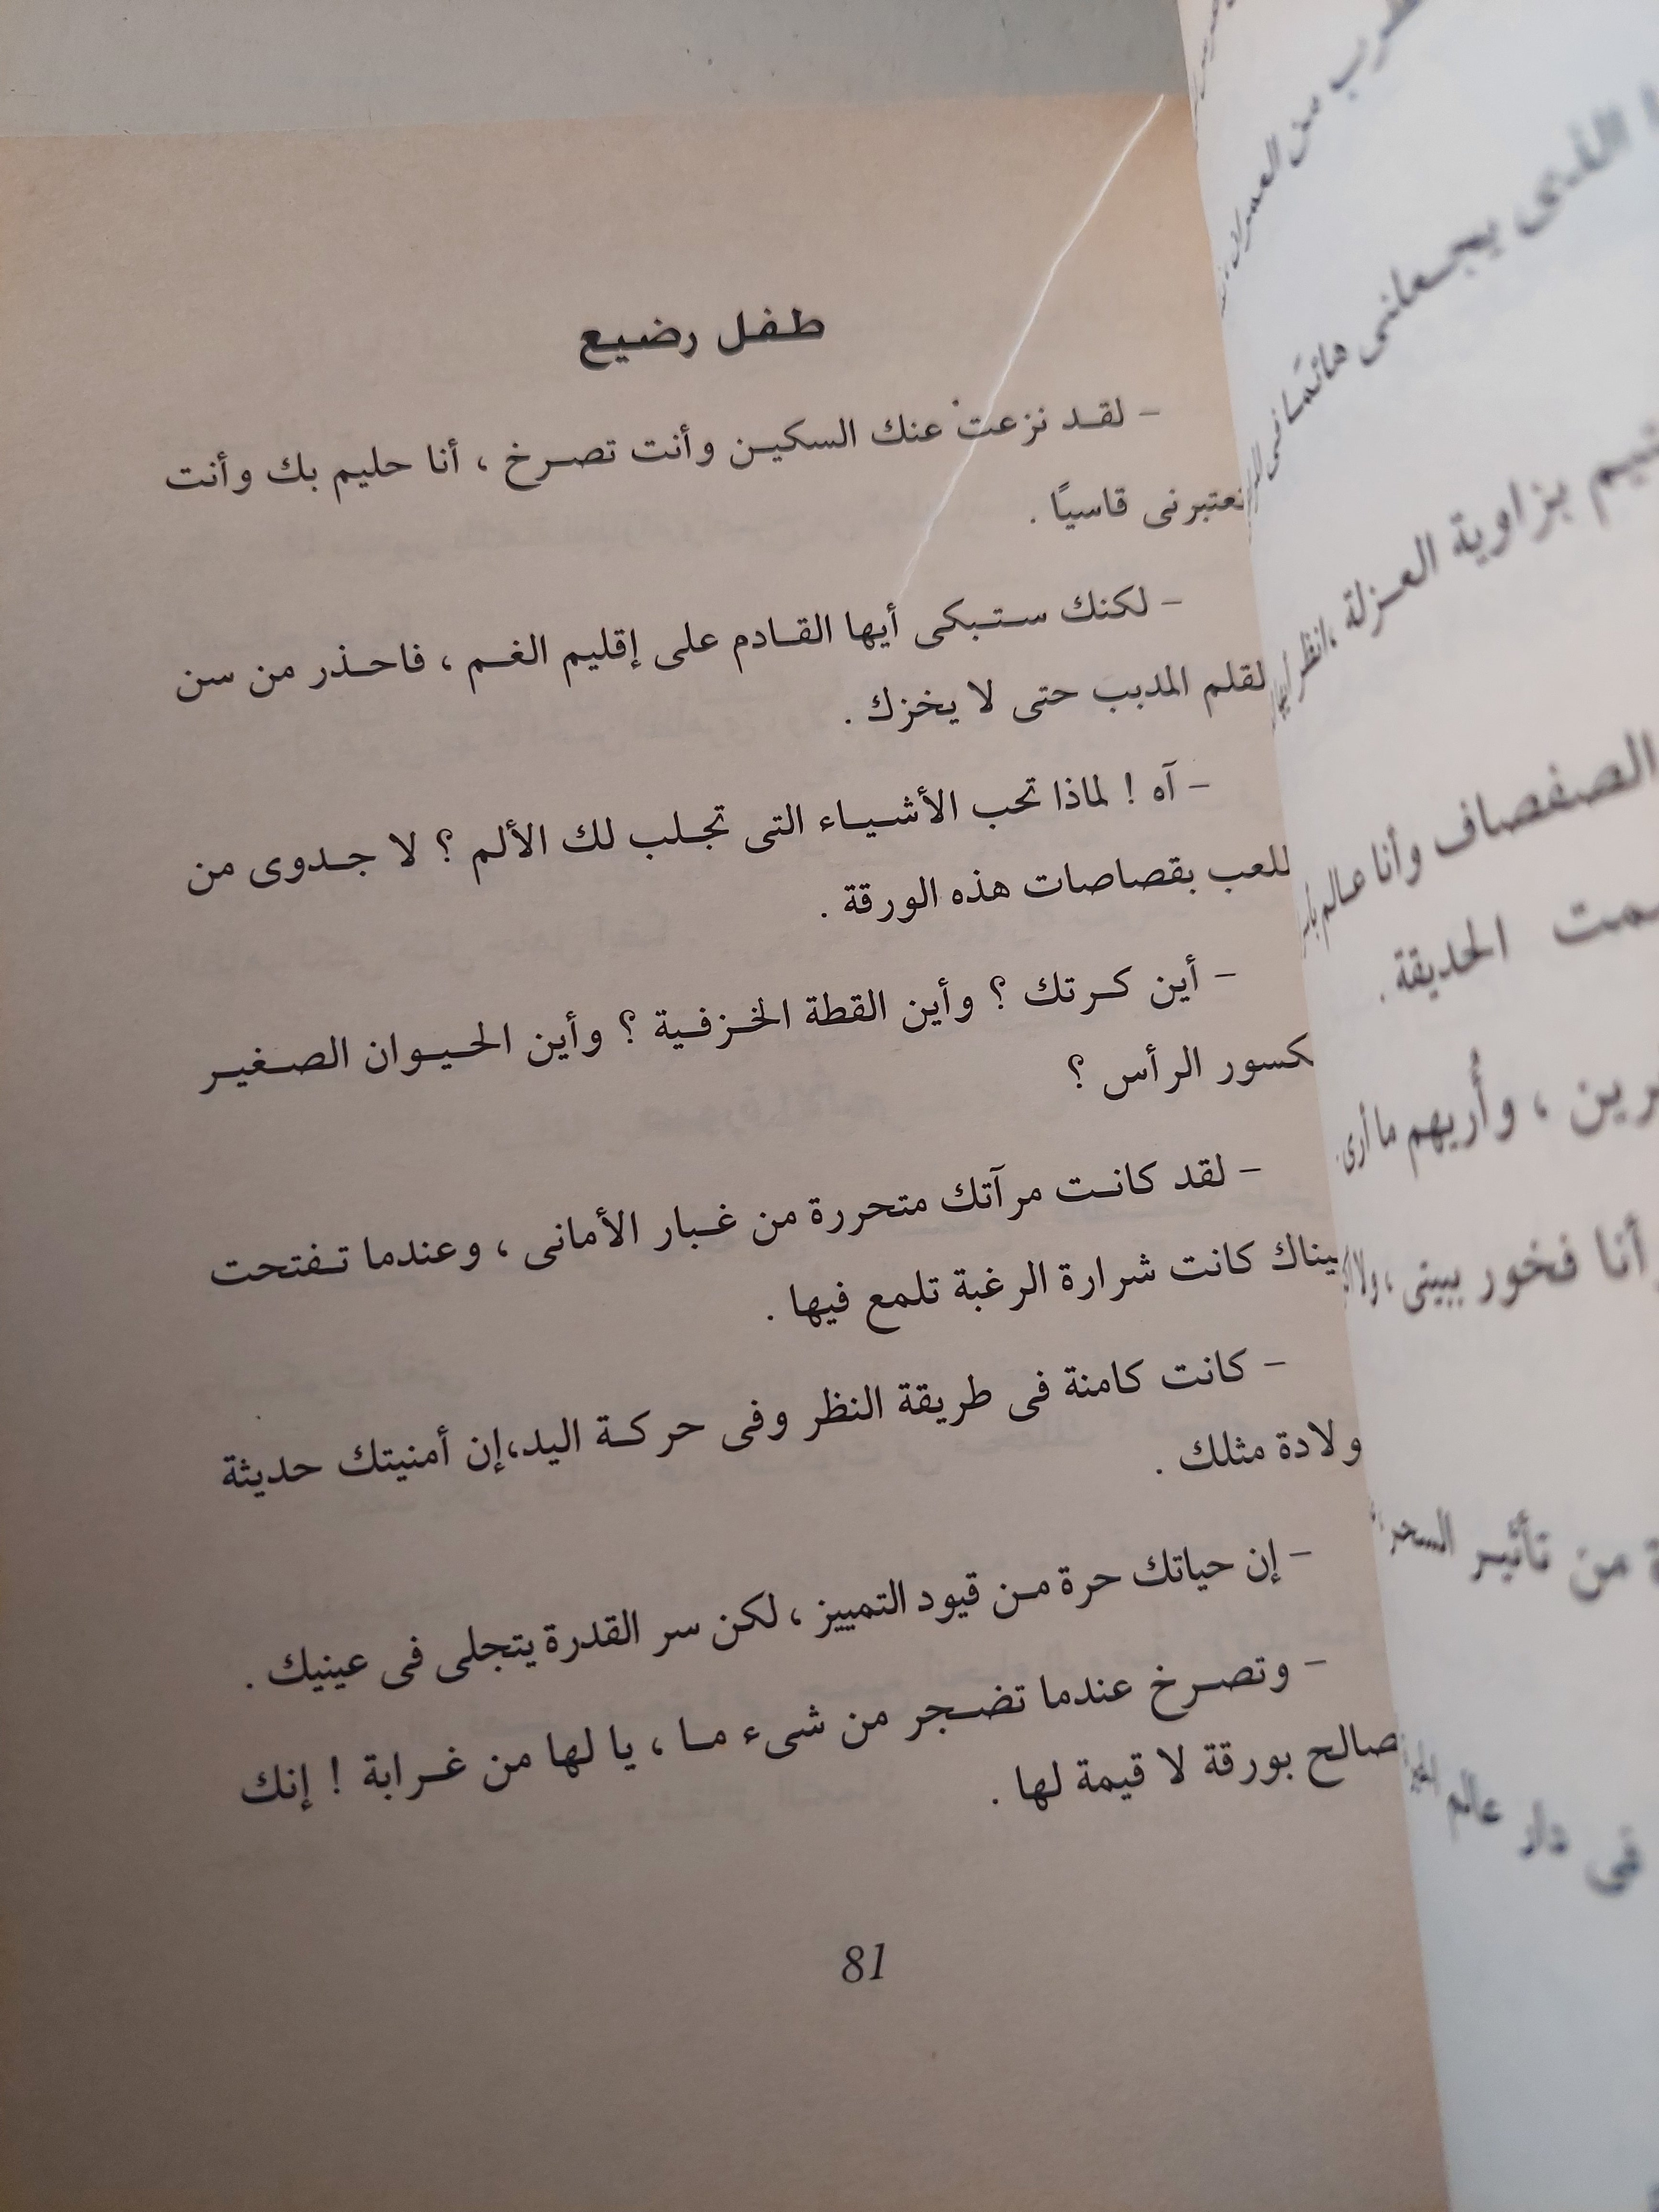 طفل رضيع
- لقد نزعت عنك السكين وأنت تصرخ ، أنا حليم بك وأنت
تعتبرنى قاسيًا .
- لكنك ستبكى أيها القادم على إقليم الغم ، فاحذر من سن
لقلم المدبب حتى لا يخزك .
- آه ! لماذا تحب الأشياء التى تجلب لك الألم ؟ لا جدوى من
للعب بقصاصات هذه الورقة .
- أين كرتك ؟ وأين القطة الخزفية ؟ وأين الحيوان الصغير
كسور الرأس ؟
- لقد كانت مرآتك متحررة من غبار الأمانى ، وعندما تفتحت
يناك كانت شرارة الرغبة تلمع فيها .
- كانت كامنة فى طريقة النظر وفى حركة اليد،إن أمنيتك حديثة
ولادة مثلك .
- إن حياتك حرة من قيود التمييز ، لكن سر القدرة يتجلى فى عينيك .
- وتصرخ عندما تضجر من شىء ما ، يا لها من غرابة ! إنك
صالح بورقة لا قيمة لها .
81
من العمران
الذى يجعلنى
بزاوية العزلة ، انظر
الصفصاف وأنا عالم
الحديقة .
، وأُريهم ما أرى .
أنا فخور ببيتى ، ولا
من تأثير السحر
فى دار عالم